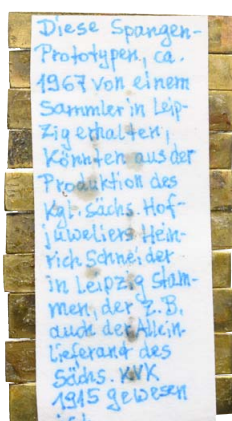 Diese Spangen-
Prototypen, ca.
1967 von einem
Sammler in Leip-
zig erhalten,
könnten aus der
Produktion des
Kgl. Sächs. Hof-
juweliers Hein-
rich Schneider
in Leipzig stam-
men, der z.B.
auch der Allein-
lieferant des
Sächs. KVK
1915 gewesen
ist